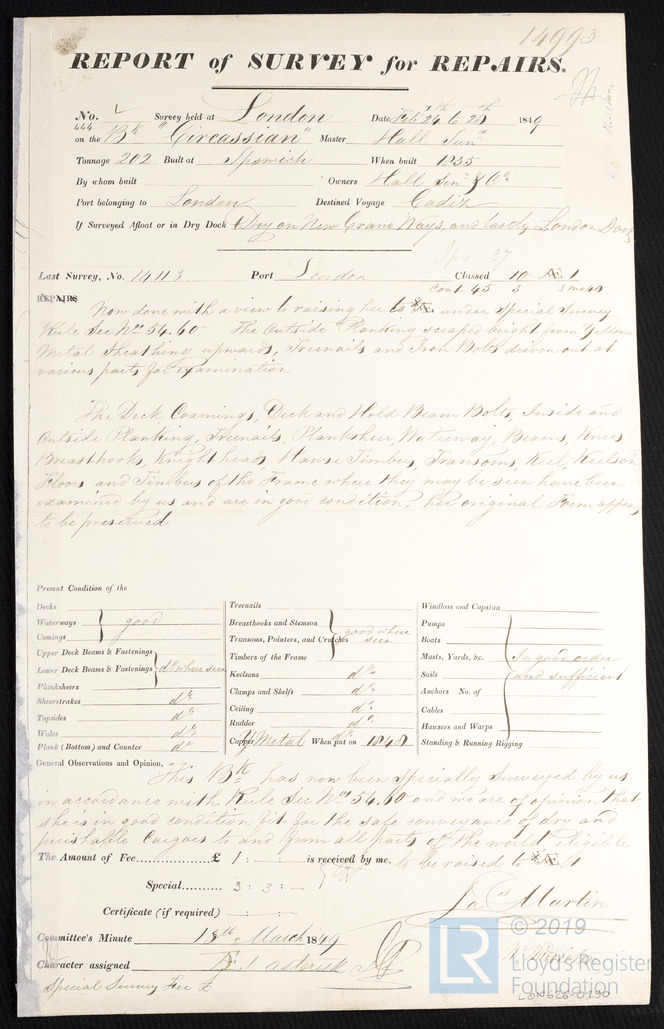 14993
REPORT of SURVEY for REPAIRS.
No. Survey held at London Date Feby 24th to 28th 1849
444
on the Bk "Circassian" Master Hall Junr
Tonnage 202 Built at Ipswich When built 1835
By whom built Owners Hall Senr & Co
Port belonging to London Destined Voyage Cadiz
If Surveyed Afloat or in Dry Dock Dry on New Crane Ways, and lastly London Dock
37
Last Survey, No. 14113 Port London Classed 10 Æ. 1
Cont. 45 3
REPAIRS
Now done with a view to raising her to *Æ under Special Survey
Rule Sec Nos 54.60 The Outside Planking scraped bright from Yellow
Metal Sheathing upwards, Treenails and Iron Bolts driven out at
various parts for examination
The Deck Coamings, Deck and Hold Beam Bolts, Inside and
Outside Planking, Treenails, Planksheer, Waterway, Beams, Knees
Breasthooks, Knightheads Hawse Timbers, Transoms, Keel, Keelson
Floors and Timbers of the Frame where they may be seen have been
examined by us and are in good condition, her original Form appears
to be preserved
Present Condition of the
Decks
Waterways good
Comings
Upper Deck Beams & Fastenings
Lower Deck Beams & Fastenings do where seen
Planksheers
Sheerstrakes do
Topsides do
Wales do
Plank (Bottom) and Counter do
Treenails
Breasthooks and Stemson good where
Transoms, Pointers, and Crutches seen
Timbers of the Frame
Keelsons do
Clamps and Shelfs do
Ceiling do
Rudder do
Copper Y Metal When put on 1848
Windlass and Capstan
Pumps
Boats
Masts, Yards, &c. In good order
Sails and sufficient
Anchors No. of
Cables
Hawsers and Warps
Standing & Running Rigging
General Observations and Opinion,
This Bk has now been Specially Surveyed by us
in accordance with Rule Sec Nos 54.60 and we are of opinion that
she is in good condition fit for the safe conveyance of dry and
perishable Cargoes to and from all parts of the world, eligible
The Amount of Fee £ 1 : - : - is received by me, to be raised to *Æ 1
Special 3 : 3 : -
Certificate (if required)
Jas Martin
Committee's Minute 13th March 1849
Character assigned Æ 1 asterisk
Special Survey Fee £
LR
© 2019
Lloyd's Register
Foundation
LON626-0190